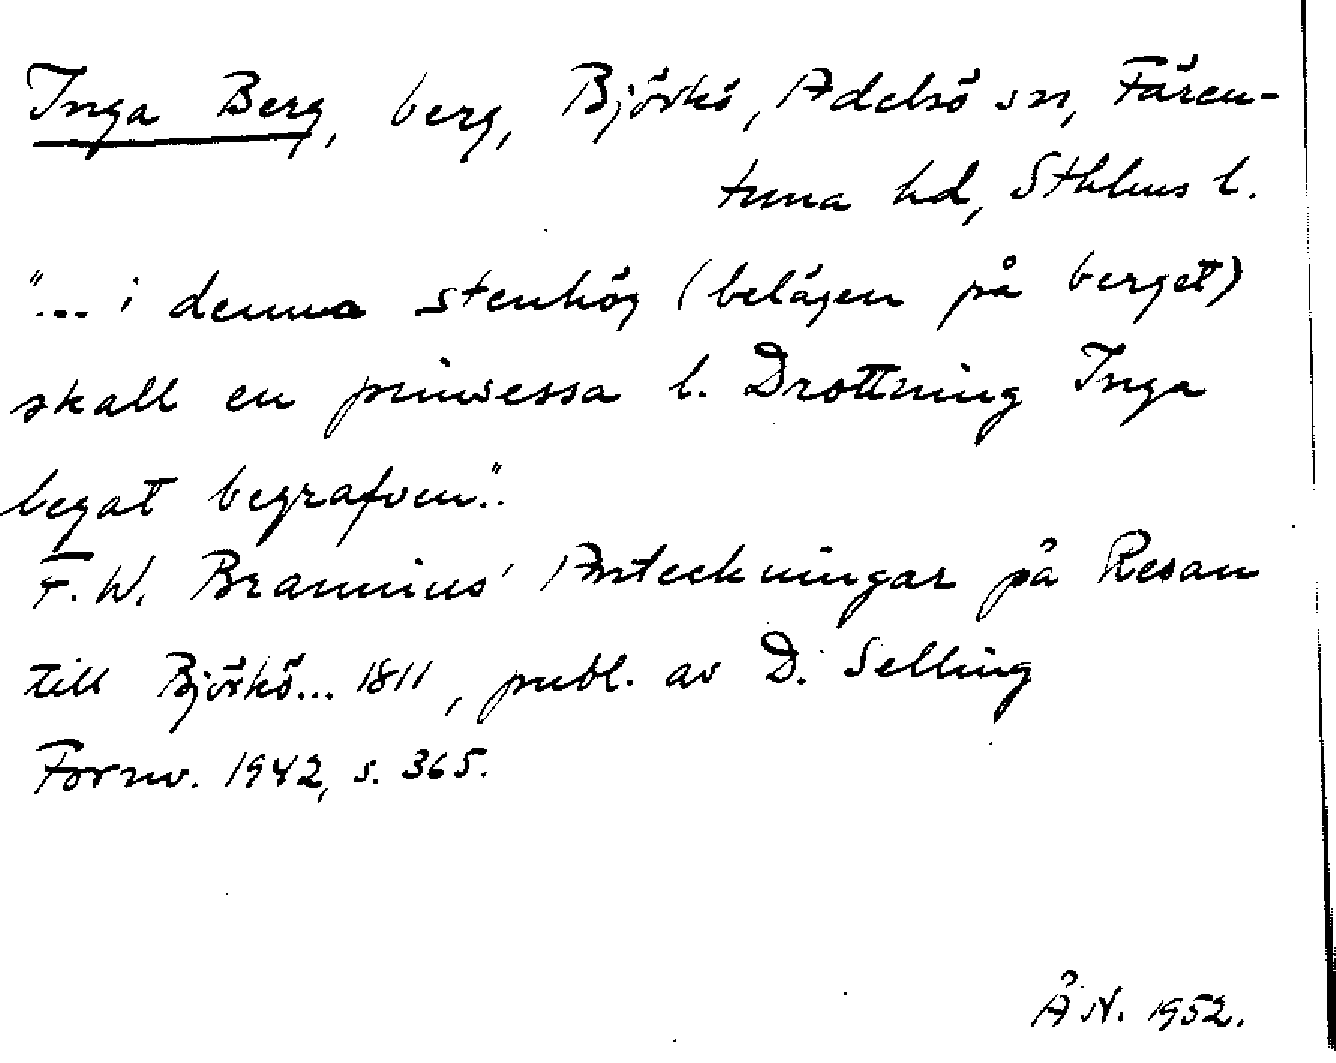 Inga Berg, berg, Björkö, Adelsö sn, Fären-
tuna hd, Sthlms l.
"... i denna stenhög (belägen på berget)
skall en prinsessa l. Drottning Inga
legat begrafven".
F.W. Brannius' Anteckningar på Resan
till Björkö... 1811, publ. av D. Selling
Fornv. 1942, s. 365.
Å.N. 1952.